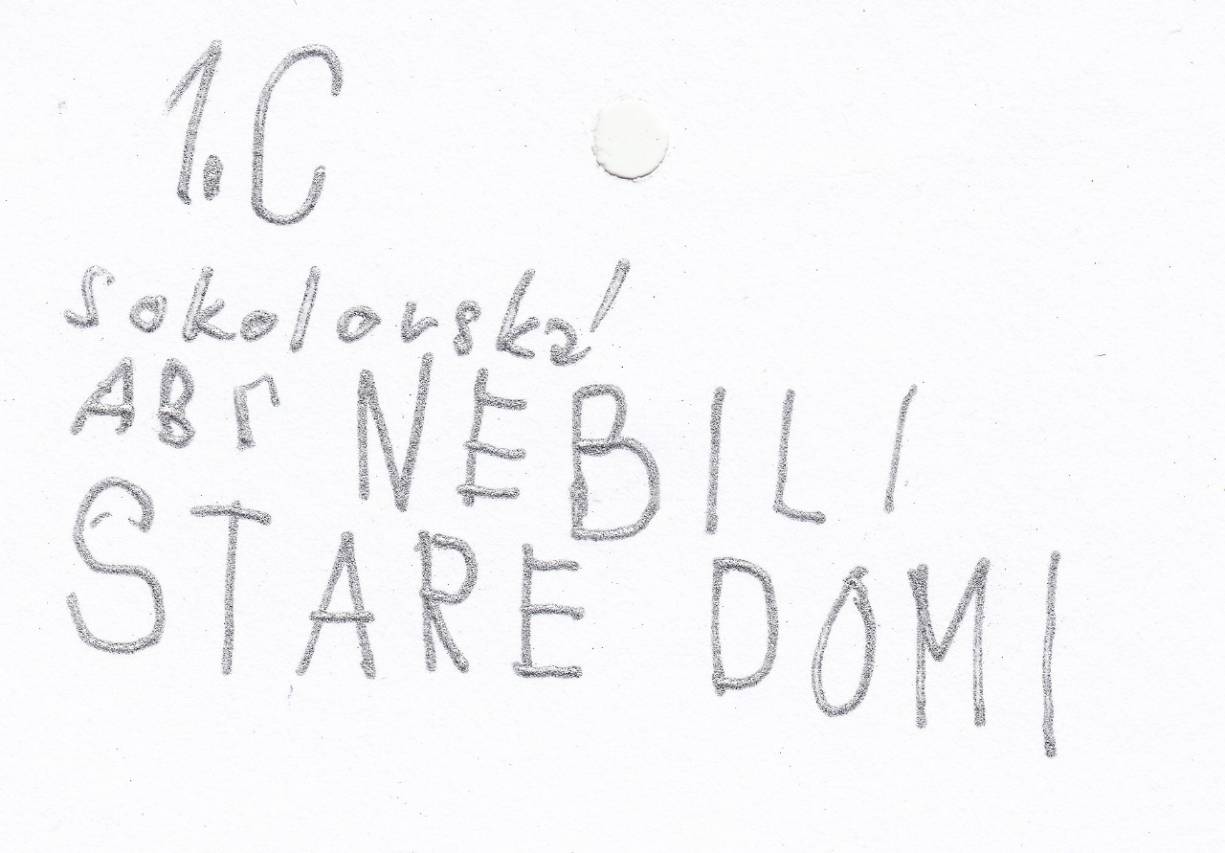 1.C
Sokolovská
ABI NEBILI
STARE DOMI